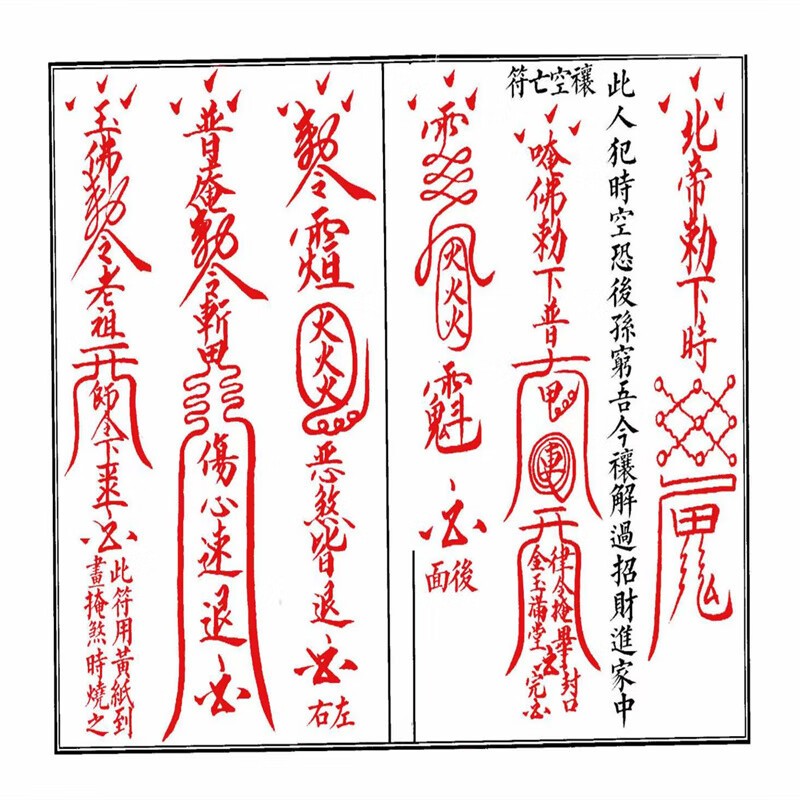 北帝勅下時
此人犯時空恐後孫窮吾今禳解過招財進家中
禳空亡符
唵佛勅下普
甲
律令掩畢封口
金玉滿堂完
火火火
後面
勅令
火火火
惡煞皆退
左右
普庵勅令斬
傷心速退
玉佛勅令老祖
師令下
此符用黃紙到
畫掩煞時燒之